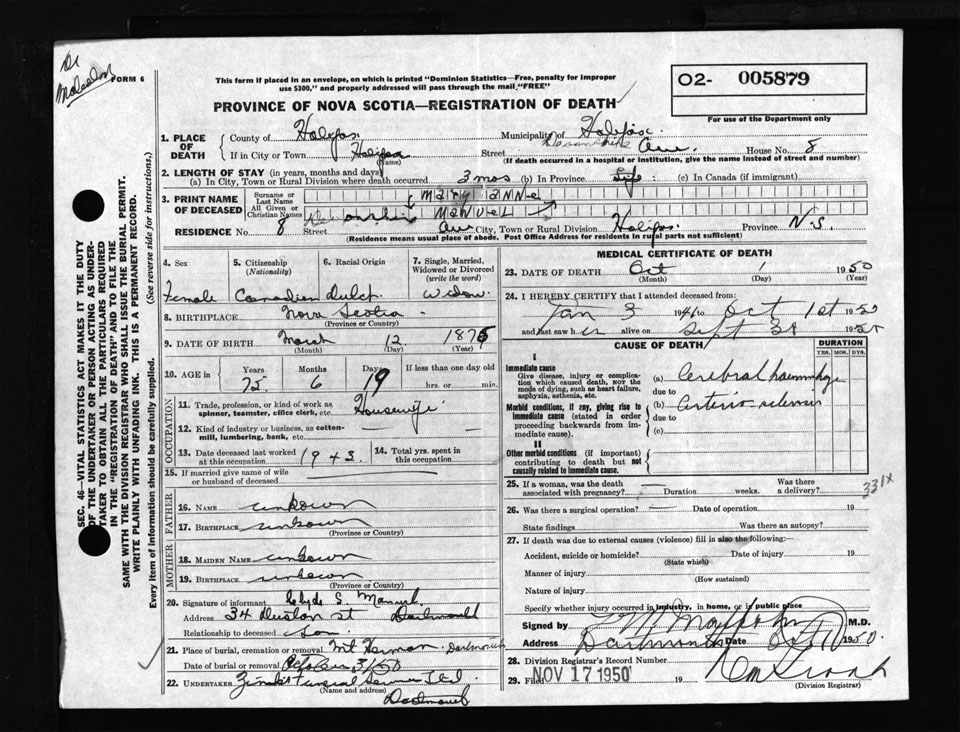 Dr
Malcolm
FORM 6
This form if placed in an envelope, on which is printed "Dominion Statistics—Free, penalty for improper
use $300," and properly addressed will pass through the mail "FREE"
O2- 005879
For use of the Department only
PROVINCE OF NOVA SCOTIA—REGISTRATION OF DEATH
SEC. 46—VITAL STATISTICS ACT MAKES IT THE DUTY
OF THE UNDERTAKER OR PERSON ACTING AS UNDER-
TAKER TO OBTAIN ALL THE PARTICULARS REQUIRED
IN THE "REGISTRATION OF DEATH" AND TO FILE THE
SAME WITH THE DIVISION REGISTRAR WHO SHALL ISSUE THE BURIAL PERMIT.
WRITE PLAINLY WITH UNFADING INK. THIS IS A PERMANENT RECORD.
Every item of information should be carefully supplied. (See reverse side for instructions.)
1. PLACE OF DEATH
County of Halifax Municipality of Halifax
If in City or Town Halifax (Name) Street Devonshire Ave House No. 8
(If death occurred in a hospital or institution, give the name instead of street and number)
2. LENGTH OF STAY (in years, months and days)
(a) In City, Town or Rural Division where death occurred 3 mos (b) In Province Life (c) In Canada (if immigrant)
3. PRINT NAME OF DECEASED
Surname or Last Name MARY ANNE
All Given or Christian Names MANUEL
RESIDENCE No. 8 Street Devonshire Ave City, Town or Rural Division Halifax Province N.S.
(Residence means usual place of abode. Post Office Address for residents in rural parts not sufficient)
4. Sex Female
5. Citizenship (Nationality) Canadian
6. Racial Origin Dutch
7. Single, Married, Widowed or Divorced (write the word) Widow
8. BIRTHPLACE Nova Scotia
(Province or Country)
9. DATE OF BIRTH March 12 1875
(Month) (Day) (Year)
10. AGE in Years 75 Months 6 Days 19 If less than one day old hrs. or min.
OCCUPATION
11. Trade, profession, or kind of work as spinner, teamster, office clerk, etc. Housewife
12. Kind of industry or business, as cotton-mill, lumbering, bank, etc.
13. Date deceased last worked at this occupation 1943 14. Total yrs. spent in this occupation
15. If married give name of wife or husband of deceased
FATHER
16. NAME unkown
17. BIRTHPLACE unkown
(Province or Country)
MOTHER
18. MAIDEN NAME unkown
19. BIRTHPLACE unkown
(Province or Country)
20. Signature of informant Clyde S. Manuel
Address 34 St Dartmouth
Relationship to deceased Son
21. Place of burial, cremation or removal Mt Herman Dartmouth
Date of burial or removal October 3/50
22. UNDERTAKER Funeral Service Ltd
(Name and address) Dartmouth
MEDICAL CERTIFICATE OF DEATH
23. DATE OF DEATH Oct 1 1950
(Month) (Day) (Year)
24. I HEREBY CERTIFY that I attended deceased from:
Jan 3 1946 to Oct 1st 1950
and last saw her alive on Sept 1950
CAUSE OF DEATH
DURATION
YRS. MOS. DYS.
I
Immediate cause
Give disease, injury or complication which caused death, NOT the mode of dying, such as heart failure, asphyxia, asthenia, etc.
(a) Cerebral haemorrhage
due to
Morbid conditions, if any, giving rise to immediate cause (stated in order proceeding backwards from immediate cause).
(b) Arterio-sclerosis
due to
(c)
II
Other morbid conditions (if important) contributing to death but not causally related to immediate cause.
25. If a woman, was the death associated with pregnancy? — Duration weeks. Was there a delivery?
331X
26. Was there a surgical operation? — Date of operation 19
State findings Was there an autopsy?
27. If death was due to external causes (violence) fill in also the following:
Accident, suicide or homicide? Date of injury 19
(State which)
Manner of injury
(How sustained)
Nature of injury
Specify whether injury occurred in industry, in home, or in public place
Signed by M.D.
Address Dartmouth Date Oct 1950
28. Division Registrar's Record Number
29. Filed NOV 17 1950 19
(Division Registrar)